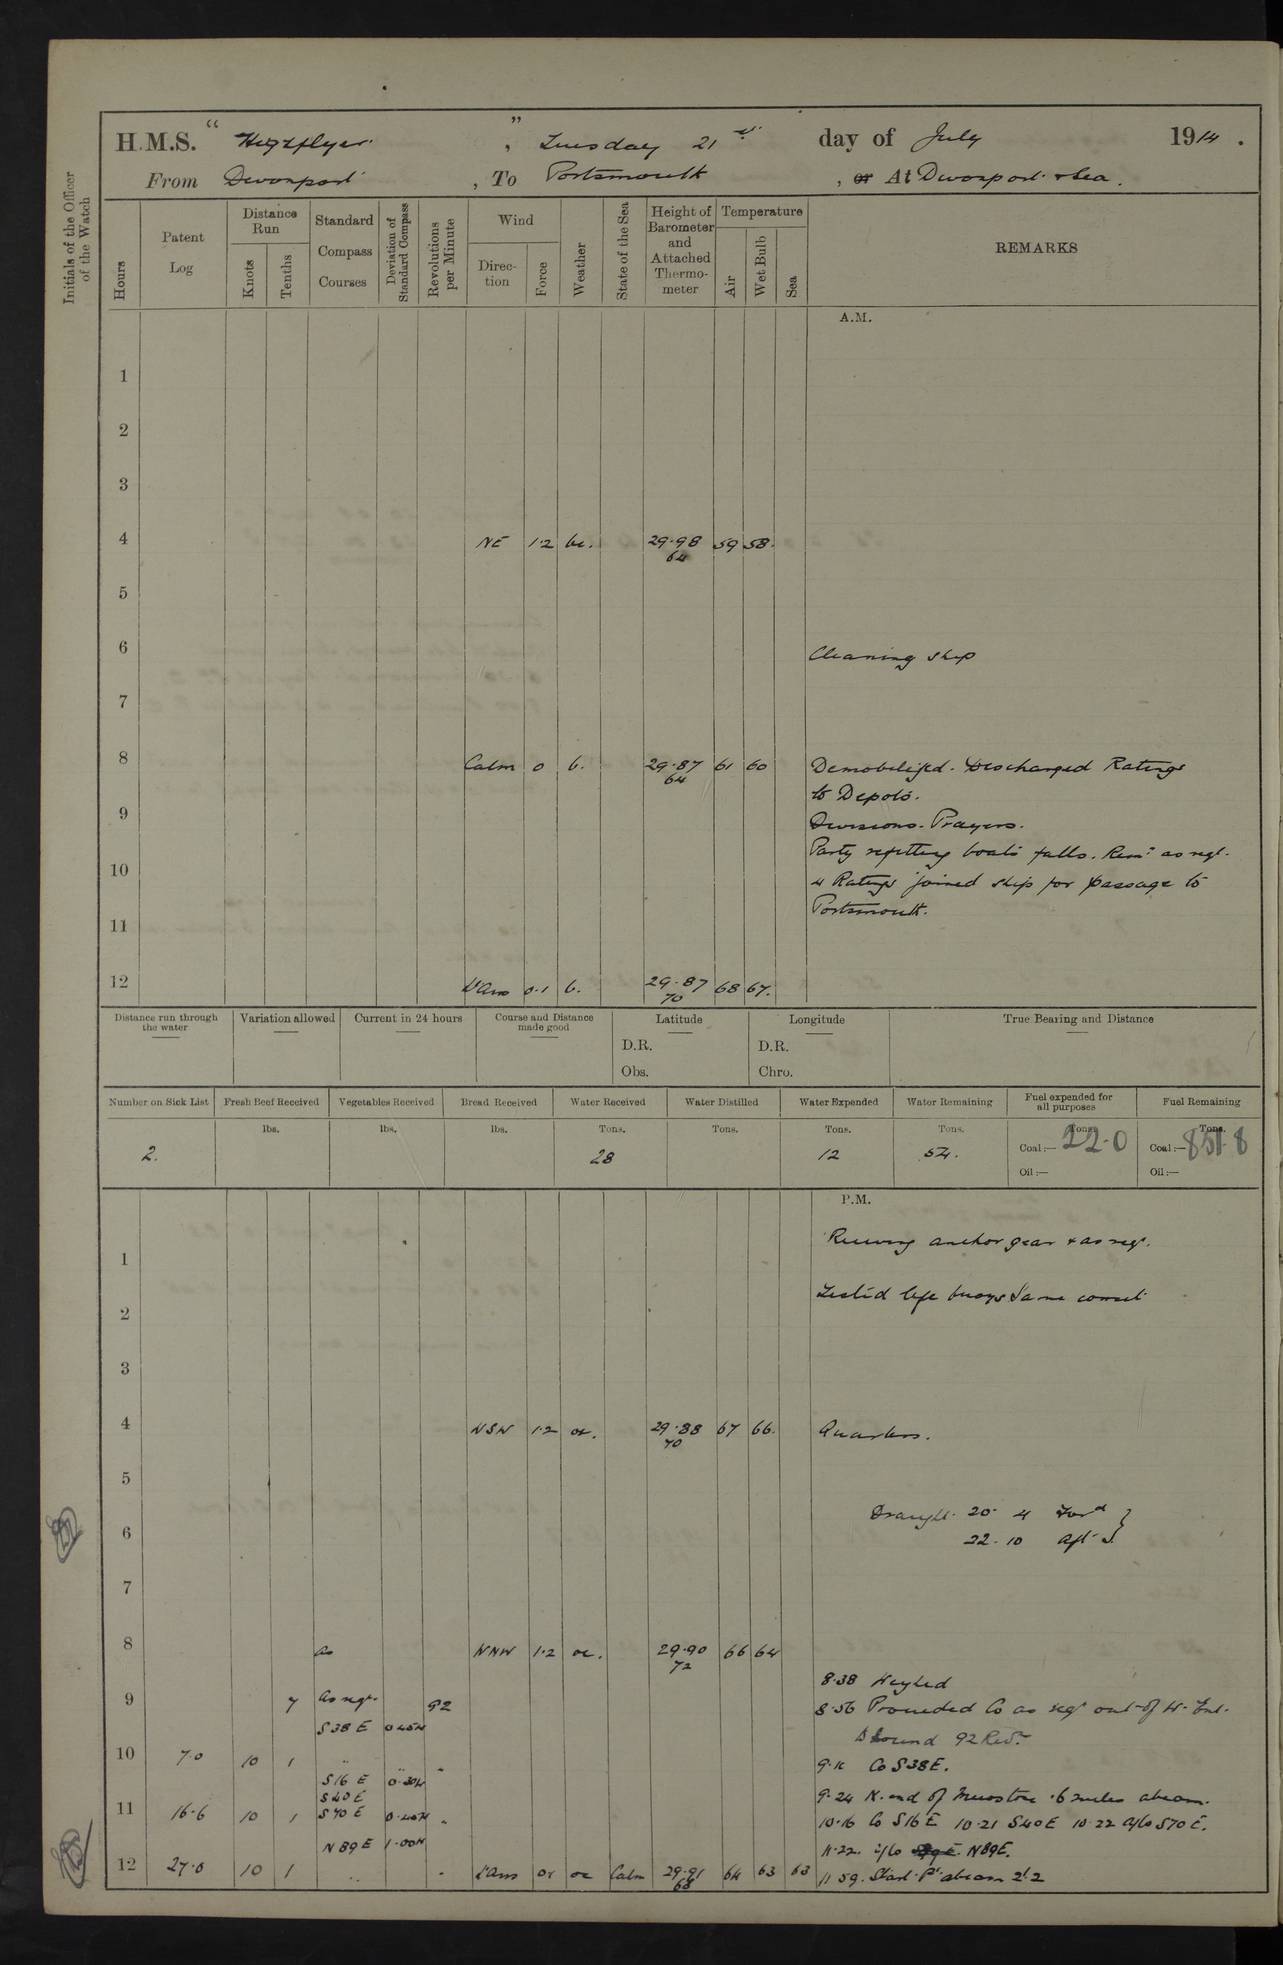 H.M.S. "Highflyer", Tuesday 21st day of July 1914.
From Devonport, To Portsmouth, or At Devonport & Sea.
Initials of the Officer of the Watch
Hours
Patent Log
Distance Run
Knots
Tenths
Standard Compass Courses
Deviation of Standard Compass
Revolutions per Minute
Wind
Direction
Force
Weather
State of the Sea
Height of Barometer and Attached Thermometer
Temperature
Air
Wet Bulb
Sea
REMARKS
A.M.
1
2
3
4 NE 1.2 bc. 29.98 64 59 58.
5
6 Cleaning ship
7
8 Calm 0 b. 29.87 64 61 60 Demobilised. Discharged Ratings
to Depots.
9 Divisions. Prayers.
Party refitting boats falls. Remr as reqt.
10 4 Ratings joined ship for passage to
Portsmouth.
11
12 Vars 0.1 b. 29.87 70 68 67.
Distance run through the water
Variation allowed
Current in 24 hours
Course and Distance made good
Latitude
D.R.
Obs.
Longitude
D.R.
Chro.
True Bearing and Distance
Number on Sick List Fresh Beef Received Vegetables Received Bread Received Water Received Water Distilled Water Expended Water Remaining Fuel expended for all purposes Fuel Remaining
lbs. lbs. lbs. Tons. Tons. Tons. Tons. Tons. Tons.
2. 28 12 54. Coal:— 22.0 Coal:— 851.8
Oil:— Oil:—
P.M.
1 Reeving anchor gear & as reqr.
2 Tested life buoys same correct
3
4 WSW 1.2 oc. 29.88 70 67 66. Quarters.
5
Draught 20 4 Ford
6 22.10 Aft
7
8 as NNW 1.2 oc. 29.90 72 66 64
8.38 Weighed
9 7 as reqr. 92 8.56 Proceeded Co as reqr out of W. Ent.
S38E 0.45W
D bound 92 Revs
10 7.0 10 1 " " " 9.10 Co S38E.
S16E 0.30W
S40E 9.24 N. end of Mewstone .6 miles abeam.
11 16.6 10 1 S70E 0.40W " 10.16 Co S16E 10.21 S40E 10.22 a/co S70E.
N89E 1.00W 11.22. a/co N89E.
12 27.0 10 1 " " Vars 01 oc Calm 29.91 68 64 63 63 11.59. Start Pt abeam 2'.2